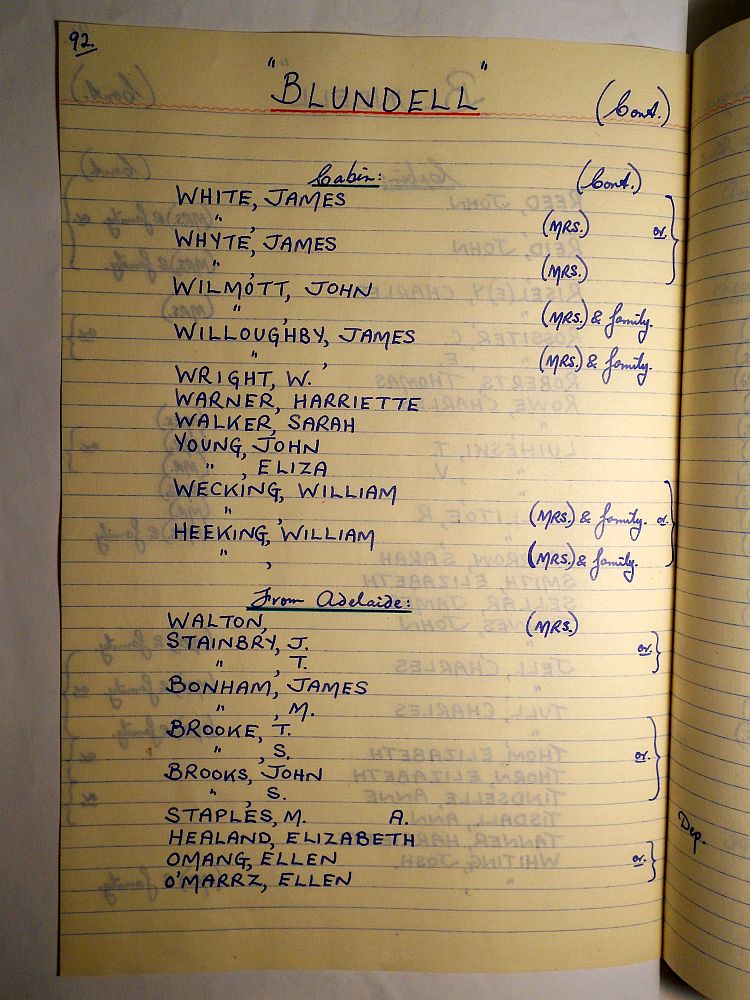 92.
"BLUNDELL" (Cont.)
Cabin: (Cont.)
WHITE, JAMES
" , (MRS.) or.
WHYTE, JAMES
" , (MRS.)
WILMOTT, JOHN
" , (MRS.) & family.
WILLOUGHBY, JAMES
" , (MRS.) & family.
WRIGHT, W.
WARNER, HARRIETTE
WALKER, SARAH
YOUNG, JOHN
" , ELIZA
WECKING, WILLIAM
" , (MRS.) & family. or.
HEEKING, WILLIAM
" , (MRS.) & family.
From Adelaide:
WALTON, (MRS.)
STAINBRY, J. or.
" , T.
BONHAM, JAMES
" , M.
BROOKE, T.
" , S. or.
BROOKS, JOHN
" , S.
STAPLES, M. A.
HEALAND, ELIZABETH
OMANG, ELLEN or.
O'MARRZ, ELLEN
Dep.